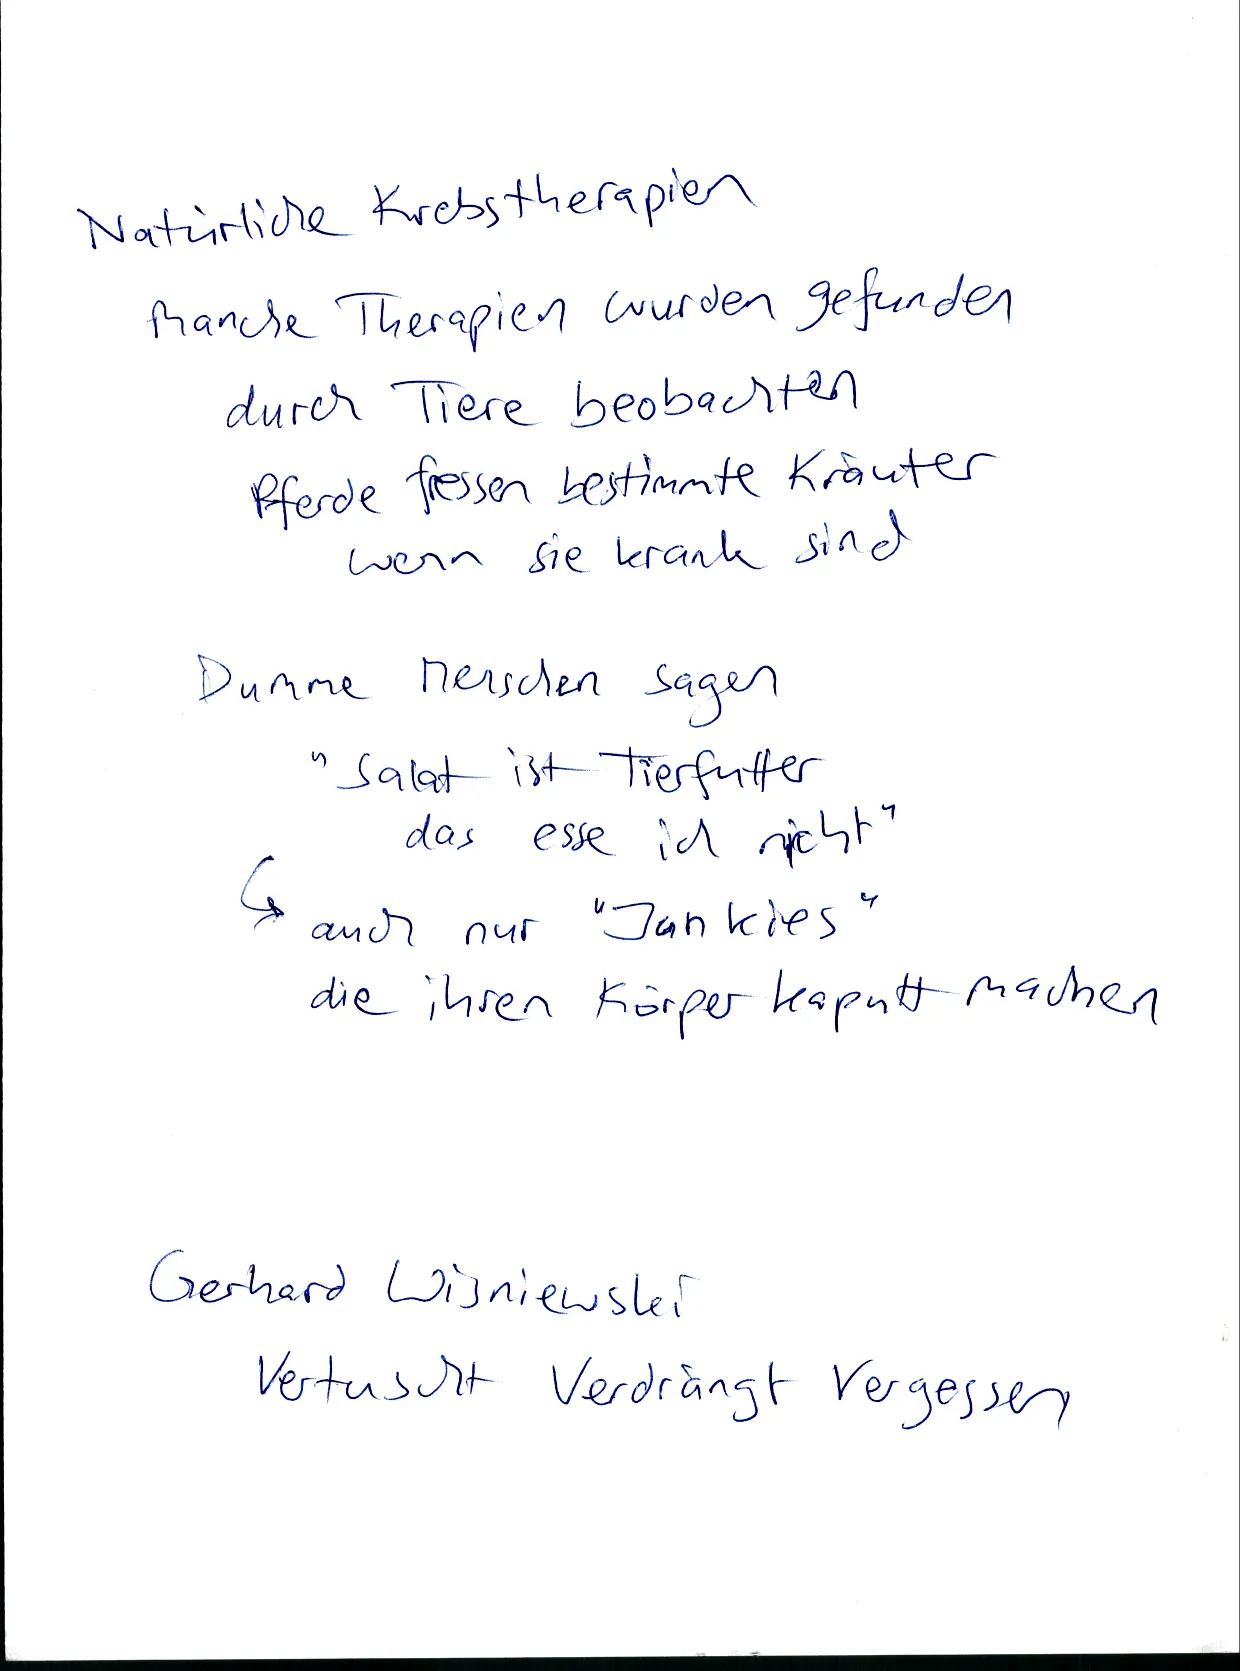 Natürliche Krebstherapien
Manche Therapien wurden gefunden
durch Tiere beobachten
Pferde fressen bestimmte Kräuter
wenn sie krank sind
Dumme Menschen sagen
"Salat ist Tierfutter
das esse ich nicht"
↳ auch nur "Junkies"
die ihren Körper kaputt machen
Gerhard Wisniewski
Vertuscht Verdrängt Vergessen